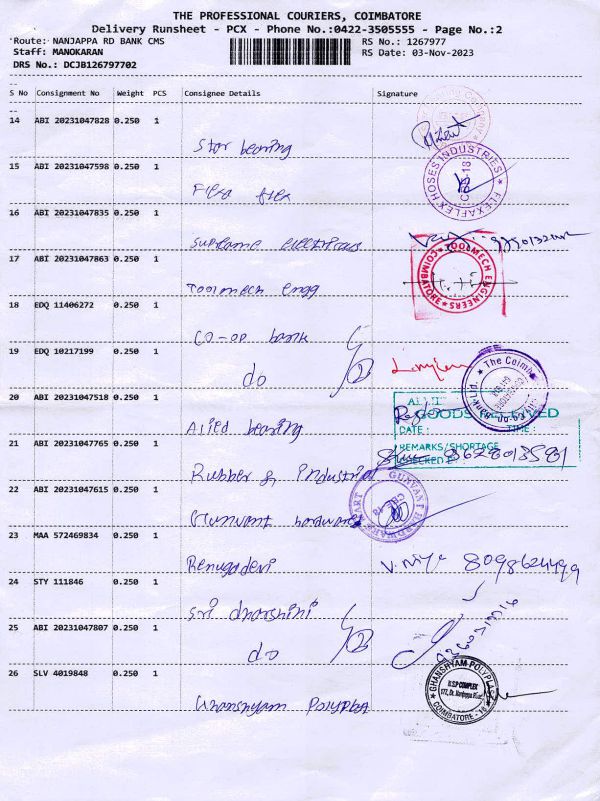 THE PROFESSIONAL COURIERS, COIMBATORE
Delivery Runsheet - PCX - Phone No.:0422-3505555 - Page No.:2
Route: NANJAPPA RD BANK CMS RS No.: 1267977
Staff: MANOKARAN RS Date: 03-Nov-2023
DRS No.: DCJB126797702
S No Consignment No Weight PCS Consignee Details Signature
14 ABI 20231047828 0.250 1
Star bearing
15 ABI 20231047598 0.250 1
Flexa flex
FLEXAFLEX HOSES INDUSTRIES
16 ABI 20231047835 0.250 1
Supreme electricas
17 ABI 20231047863 0.250 1
Toolmech engg
TOOLMECH ENGINEERS
COIMBATORE
18 EDQ 11406272 0.250 1
CO-OP. bank
19 EDQ 10217199 0.250 1
do
The Coimb
20 ABI 20231047518 0.250 1
Allied bearing
GOODS RECEIVED
DATE : TIME :
REMARKS/SHORTAGE
21 ABI 20231047765 0.250 1
Rubber & Industrial
8628013581
22 ABI 20231047615 0.250 1
Gunvant hardware
GUNVANT HARDWARE MART
CBE-18
23 MAA 572469834 0.250 1
Renugadevi
8098624499
24 STY 111846 0.250 1
Sri dharshini
25 ABI 20231047807 0.250 1
do
26 SLV 4019848 0.250 1
Ghanshyam Polyplast
GHANSHYAM POLYPLAST
B.S.P COMPLEX
172, Dr. Nanjappa Road,
COIMBATORE - 18